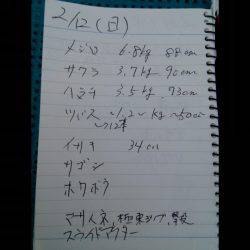 2/12 (日)
メジロ 6.8kg 88cm
サワラ 3.7kg 90cm
ハマチ 3.5kg 73cm
ツバス ~1.2~kg ~50cm
~12本
イサキ 34cm
サゴシ
ホウボウ
マサムネ、極東ジグ、撃投
スライドアクター